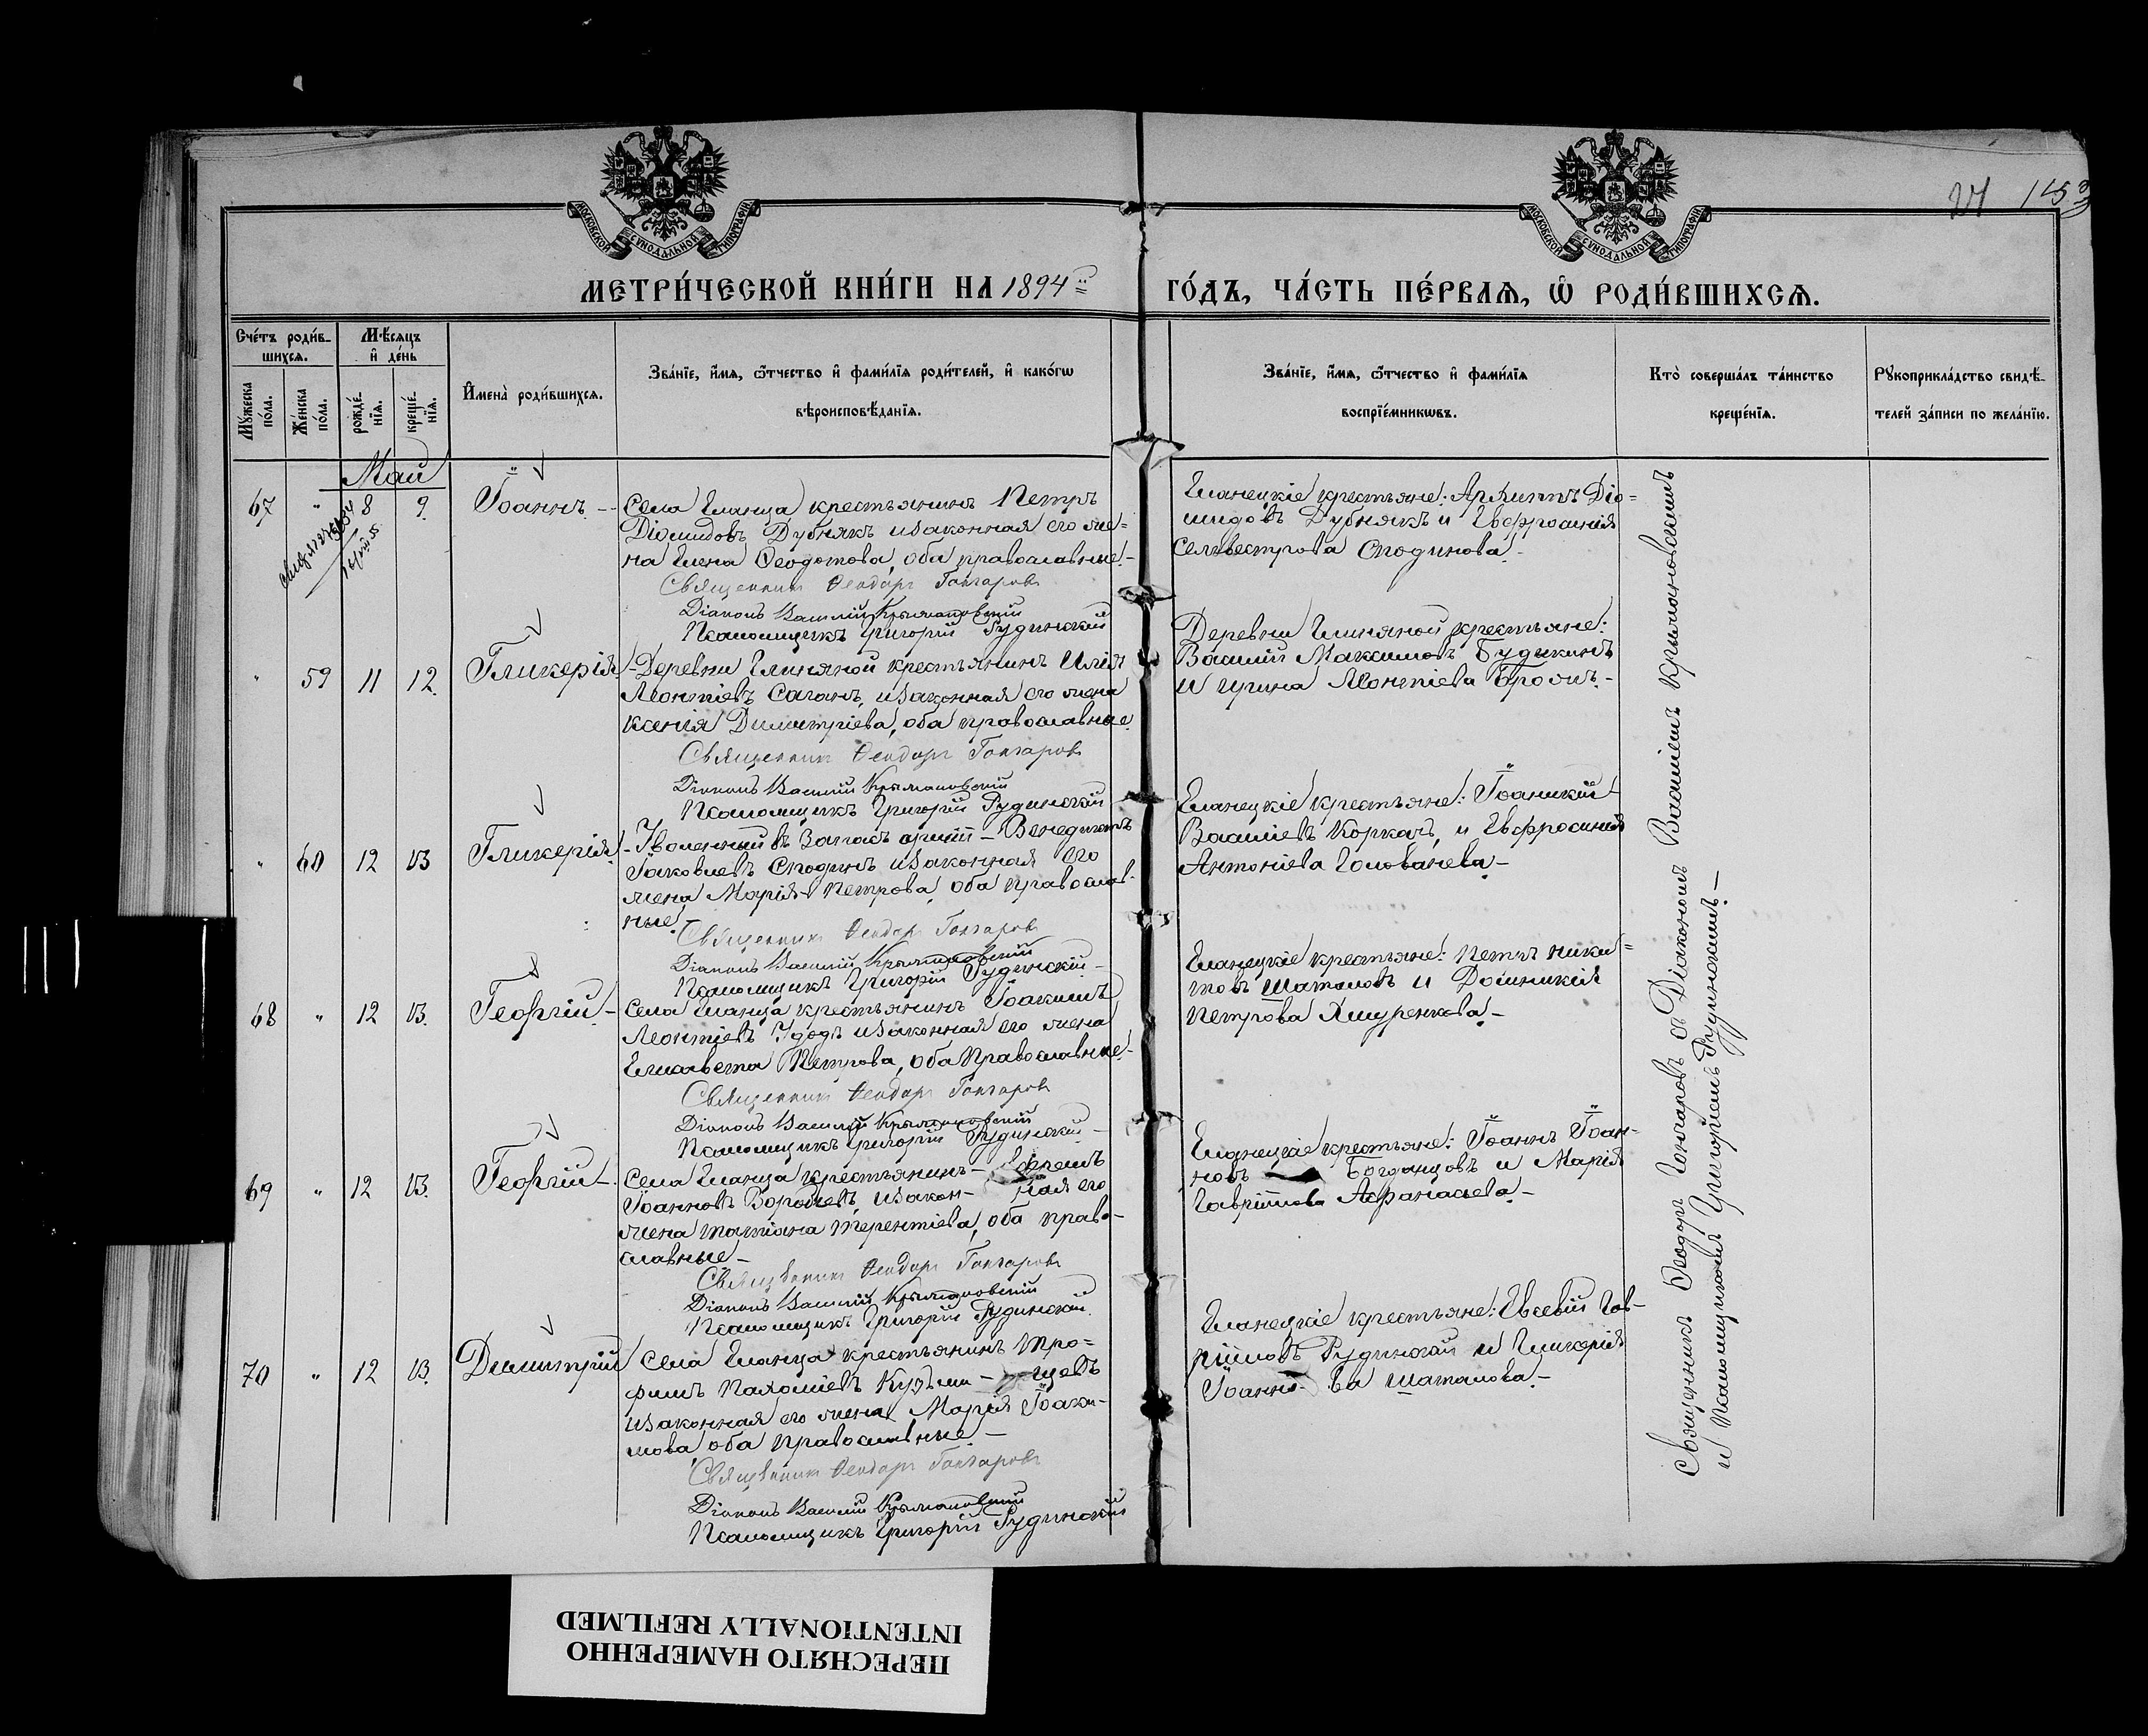 МОСКОВСКОЙ СѴНОДАЛЬНОЙ ТИПОГРАФІИ
МОСКОВСКОЙ СѴНОДАЛЬНОЙ ТИПОГРАФІИ
МЕТРИ́ЧЕСКОЙ КНИ́ГИ НА 1894й
ГО́ДЪ, ЧА́СТЬ ПЕ́РВАѦ, Ѡ҆ РОДИ́ВШИХСѦ.
Сче́тъ роди́в-
шихсѧ.
Мѣ́сѧцъ
и҆ де́нь
Мꙋ́жеска
по́ла.
Же́нска
по́ла.
рожде́-
нїѧ.
креще́-
нїѧ.
И҆мена̀ роди́вшихсѧ.
Зва́нїе, и҆́мѧ, ѻ҆́тчество и҆ фами́лїѧ роди́телей, и҆ како́гѡ
вѣроисповѣ́данїѧ.
Зва́нїе, и҆́мѧ, ѻ҆́тчество и҆ фами́лїѧ
воспрїе́мникѡвъ.
Кто̀ соверша́лъ та́инство
креще́нїѧ.
Рꙋкоприкла́дство свидѣ́-
телей за́писи по жела́нїю.
Май
67 " 8 9. Іоаннъ -
Села Еланца крестьянинъ Петръ
Діомидовъ Дубнякъ и законная его же-
на Елена Ѳеодотова, оба православные. -
Священник Ѳеодоръ Гончаровъ
Діаконъ Василій Крыжановскій
Псаломщикъ Григорій Рудинскій
Еланецкіе крестьяне: Архиппъ Діо=
мидовъ Дубнякъ и Евфросинія
Селивестрова Сподинова. -
" 59 11 12. Гликерія
- Деревни Глиняной крестьянинъ Илія
Леонтіевъ Саганъ, и законная его жена
Ксенія Димитріева, оба православные.
Священник Ѳеодоръ Гончаровъ
Діаконъ Василій Крыжановскій
Псаломщикъ Григорій Рудинскій
Деревни Глиняной крестьяне:
Василій Максимовъ Будикинъ
и Ирина Леонтіева -
" 60 12 13 Гликерія
- Уволенный въ запасъ арміи - Венедиктъ
Іаковлевъ Сподинъ и законная его
жена Марія Петрова, оба православ-
ные.
Священник Ѳеодоръ Гончаровъ
Діаконъ Василій Крыжановскій
Псаломщикъ Григорій Рудинскій -
Еланецкіе крестьяне: Іоаникій
Василіевъ Коркачъ, и Евфросинія
Антоніева Голованева. -
68 " 12 13. Георгій -
Села Еланца крестьянинъ Іоакимъ
Леонтіевъ Удодъ и законная его жена
Елисавета Петрова, оба православные. -
Священник Ѳеодоръ Гончаровъ
Діаконъ Василій Крыжановскій
Псаломщикъ Григорій Рудинскій -
Еланецкіе крестьяне: Петръ Ники=
товъ Шаталовъ и Домникія
Петрова Хмуренкова. -
69 " 12 13. Георгій -
Села Еланца крестьянинъ - Ефремъ
Іоанновъ Воробьевъ, и закон- ная его
жена Татіана Терентіева, оба право-
славные -
Священник Ѳеодоръ Гончаровъ
Діаконъ Василій Крыжановскій
Псаломщикъ Григорій Рудинскій.
Еланецкіе крестьяне: Іоаннъ Іоан-
новъ Богданцовъ и Марія
Гавріилова Афанасьева. -
70 " 12 13. Димитрій
Села Еланца крестьянинъ Тро=
фимъ Пахоміевъ Кузьми- нцевъ
и законная его жена Марія Іоаки-
мова, оба православные. -
Священник Ѳеодоръ Гончаровъ
Діаконъ Василій Крыжановскій
Псаломщикъ Григорій Рудинскій
Еланецкіе крестьяне: Евсевій Гав-
ріиловъ Рудинскій и Гликерія
Іоанно- ва Шаталова. -
Священникъ Ѳеодоръ Гончаровъ съ Діакономъ Василіемъ Крыжановскимъ
и Псаломщикомъ Григоріемъ Рудинскимъ. -
ПЕРЕСНЯТО НАМЕРЕННО
INTENTIONALLY REFILMED